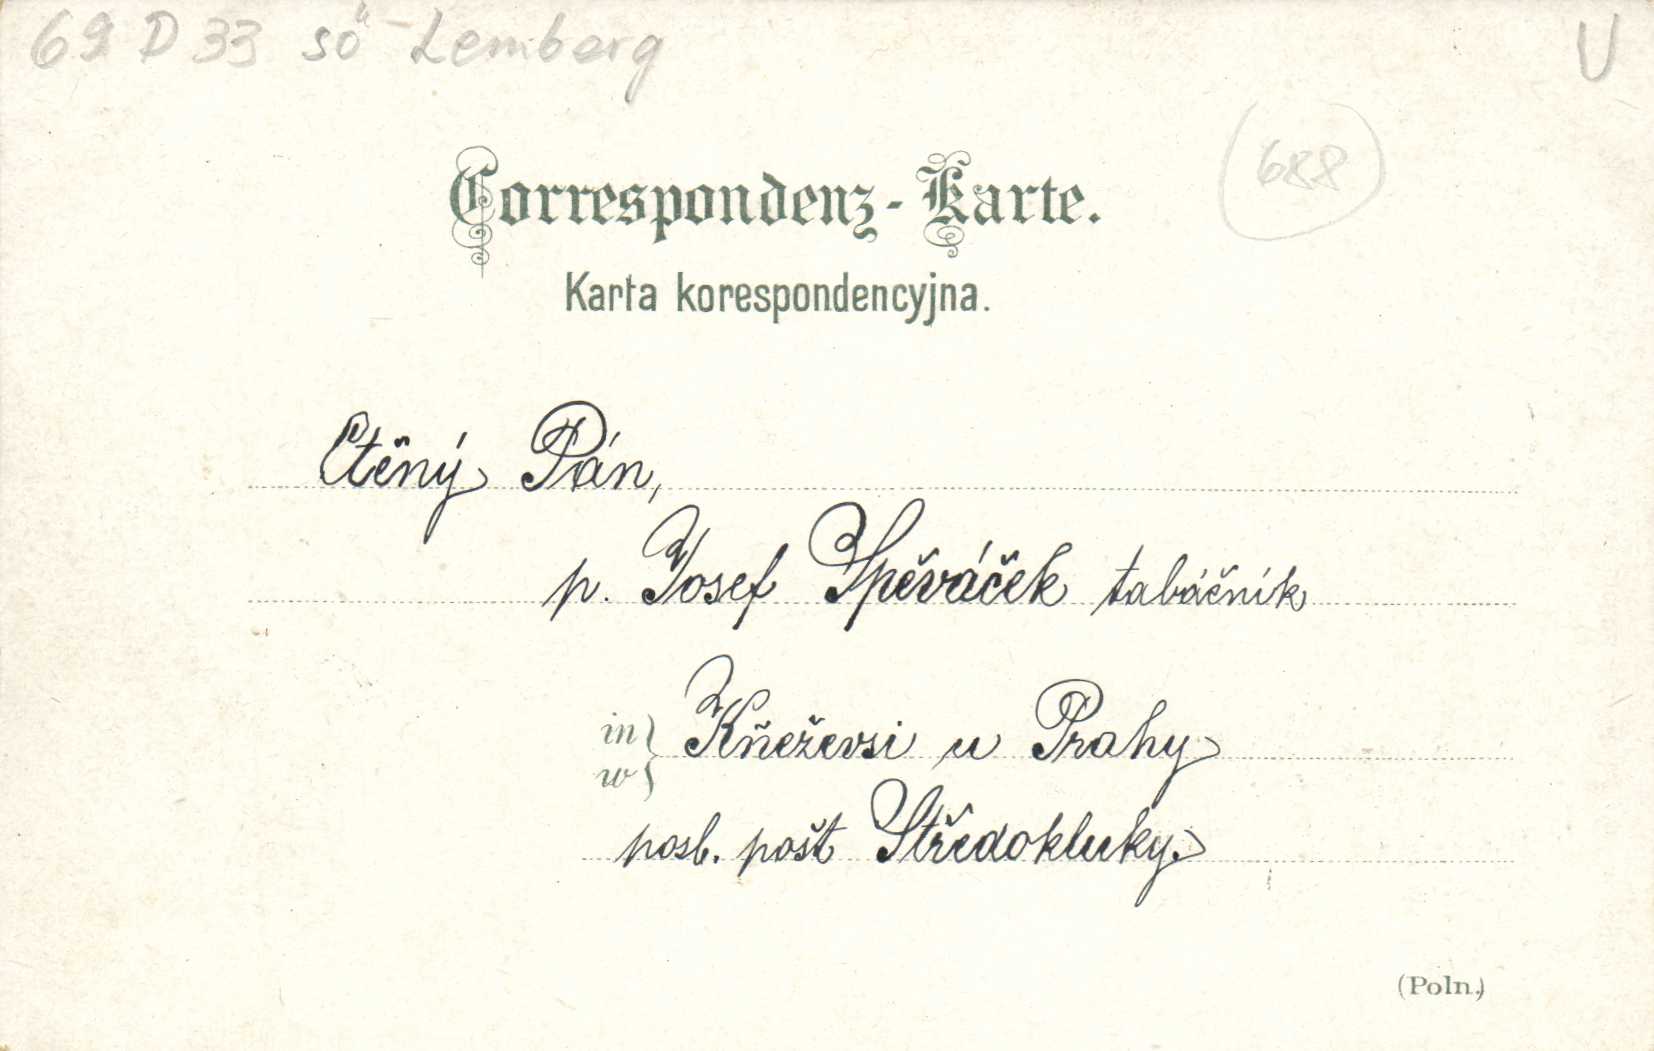 69 D 33 sö - Lemberg
U
688
Correspondenz-Karte.
Karta korespondencyjna.
Ctěný Pán,
p. Josef Spěváček tabáčník
in
w
Kňeževsi u Prahy
posl. pošt Středokluky.
(Poln.)